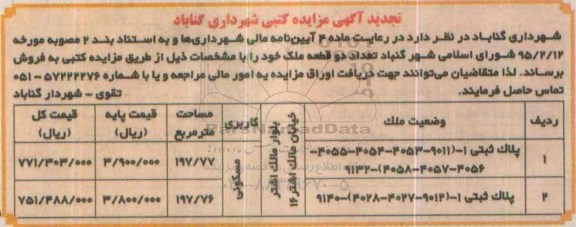 تجدید آگهی مزایده کتبی شهرداری گناباد
شهرداری گناباد در نظر دارد در رعایت ماده ۴ آیین‌نامه مالی شهرداری‌ها و به استناد بند ۲ مصوبه مورخه
۹۵/۲/۱۲ شورای اسلامی شهر گناباد تعداد دو قطعه ملک خود را با مشخصات ذیل از طریق مزایده کتبی به فروش
برساند. لذا متقاضیان می‌توانند جهت دریافت اوراق مزایده به امور مالی مراجعه و یا با شماره ۵۷۲۲۲۲۷۶ - ۰۵۱
تماس حاصل فرمایند.
تقوی - شهردار گناباد
ردیف وضعیت ملک خیابان مالک اشتر۱۶ بلوار مالک اشتر کاربری مساحت مترمربع قیمت پایه (ریال) قیمت کل (ریال)
۱ پلاک ثبتی ۱-(۹۰۱۱-۴۰۵۳-۴۰۵۴-۴۰۵۵-
۴۰۵۶-۴۰۵۷-۴۰۵۸)-۹۱۳۲ مسکونی ۱۹۷/۷۷ ۳/۹۰۰/۰۰۰ ۷۷۱/۳۰۳/۰۰۰
۲ پلاک ثبتی ۱-(۹۰۱۲-۴۰۲۷-۴۰۲۸)-۹۱۴۰ ۱۹۷/۷۶ ۳/۸۰۰/۰۰۰ ۷۵۱/۴۸۸/۰۰۰
ParsNamadData